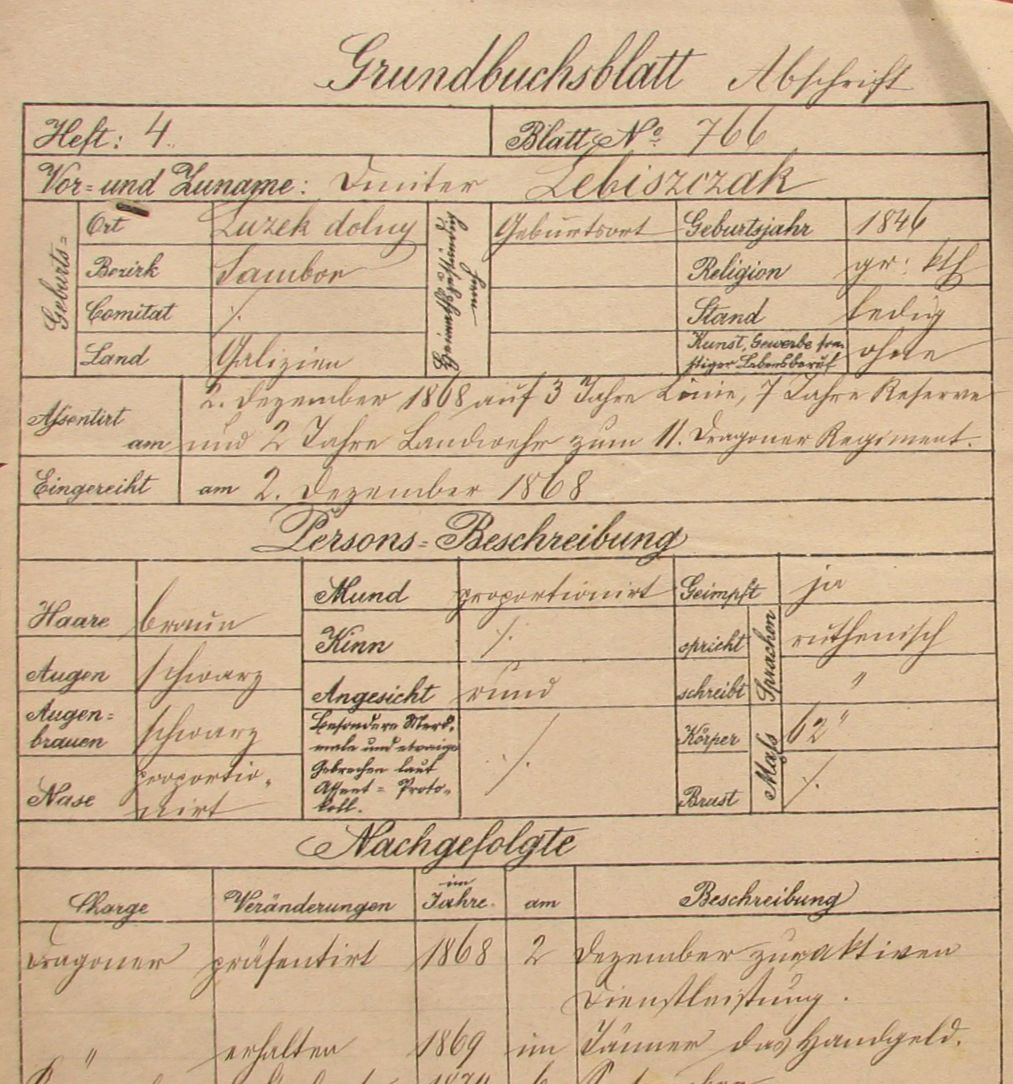 Grundbuchsblatt Abschrift
Heft: 4. Blatt No. 766
Vor= und Zuname: Dmiter Lebiszczak
Geburts=
Ort Luzek dolny
Bezirk Sambor
Comitat ·/.
Land Galizien
Geburtsort
Geburtsjahr 1846
Religion gr: kth
Stand ledig
Kunst, Gewerbe son=
stiger Lebensberuf ohne
Assentirt am
2. Dezember 1868 auf 3 Jahre Linie, 7 Jahre Reserve
und 2 Jahre Landwehr zum 11. Dragoner Regiment.
Eingereiht am 2. Dezember 1868
Persons=Beschreibung
Haare braun
Augen schwarz
Augen=
brauen schwarz
Nase proportio=
nirt
Mund proportionirt
Kinn ·/.
Angesicht rund
Besondere Merk=
male und etwaige
Gebrechen laut
Assent=Proto=
koll. ·/.
Geimpft ja
Sprachen
spricht ruthenisch
schreibt "
Maß
Körper 62"
Brust ·/.
Nachgefolgte
Charge Veränderungen im Jahre. am Beschreibung
Dragoner präsentirt 1868 2 Dezember zur aktiven
Dienstleistung.
" erhalten 1869 im Jänner das Handgeld.